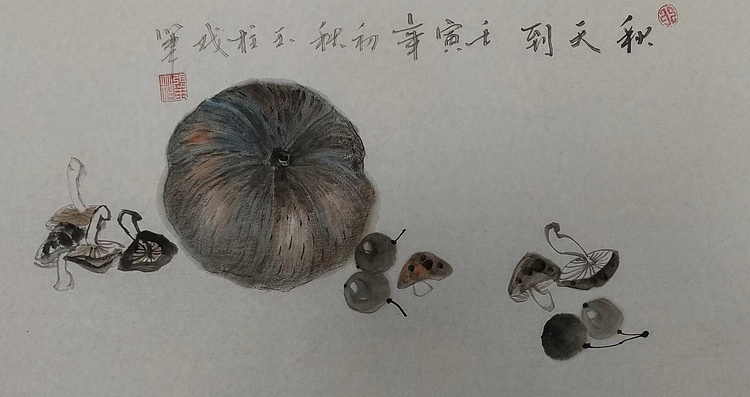 秋天到 壬寅年初秋玉柱戏筆